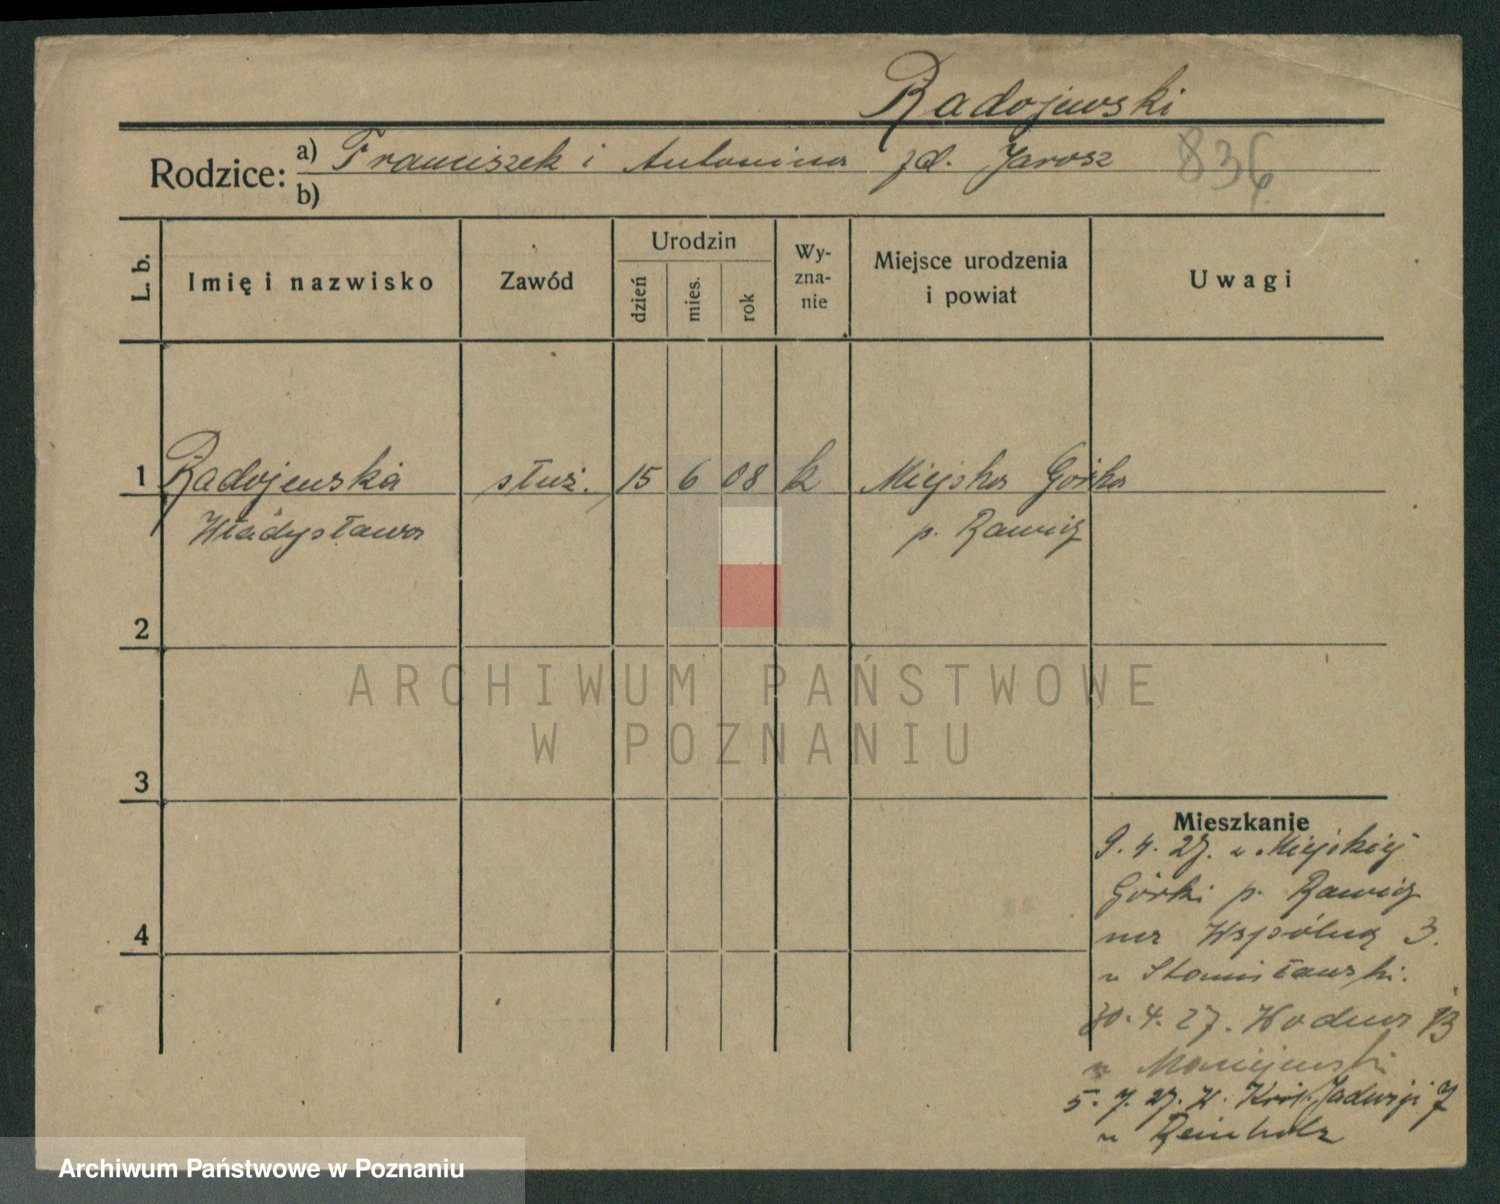 Radojewski
Rodzice: a) Franciszek i Antonina zd. Jarosz
b)
836
L. b.
Imię i nazwisko
Zawód
Urodzin
dzień
mies.
rok
Wy-
zna-
nie
Miejsce urodzenia
i powiat
Uwagi
1 Radojewska służ. 15 6 08 k Miejska Górka
Władysława p. Rawicz
2
ARCHIWUM PAŃSTWOWE
W POZNANIU
3
Mieszkanie
9. 4. 27. z Miejskiej
Górki p. Rawicz
na Wspólną 3.
u Stanisławski.
30. 4. 27. Wodna 13
u Maciejewski
5. 7. 27. W. Król. Jadwigi 7
u Reinholz
4
Archiwum Państwowe w Poznaniu